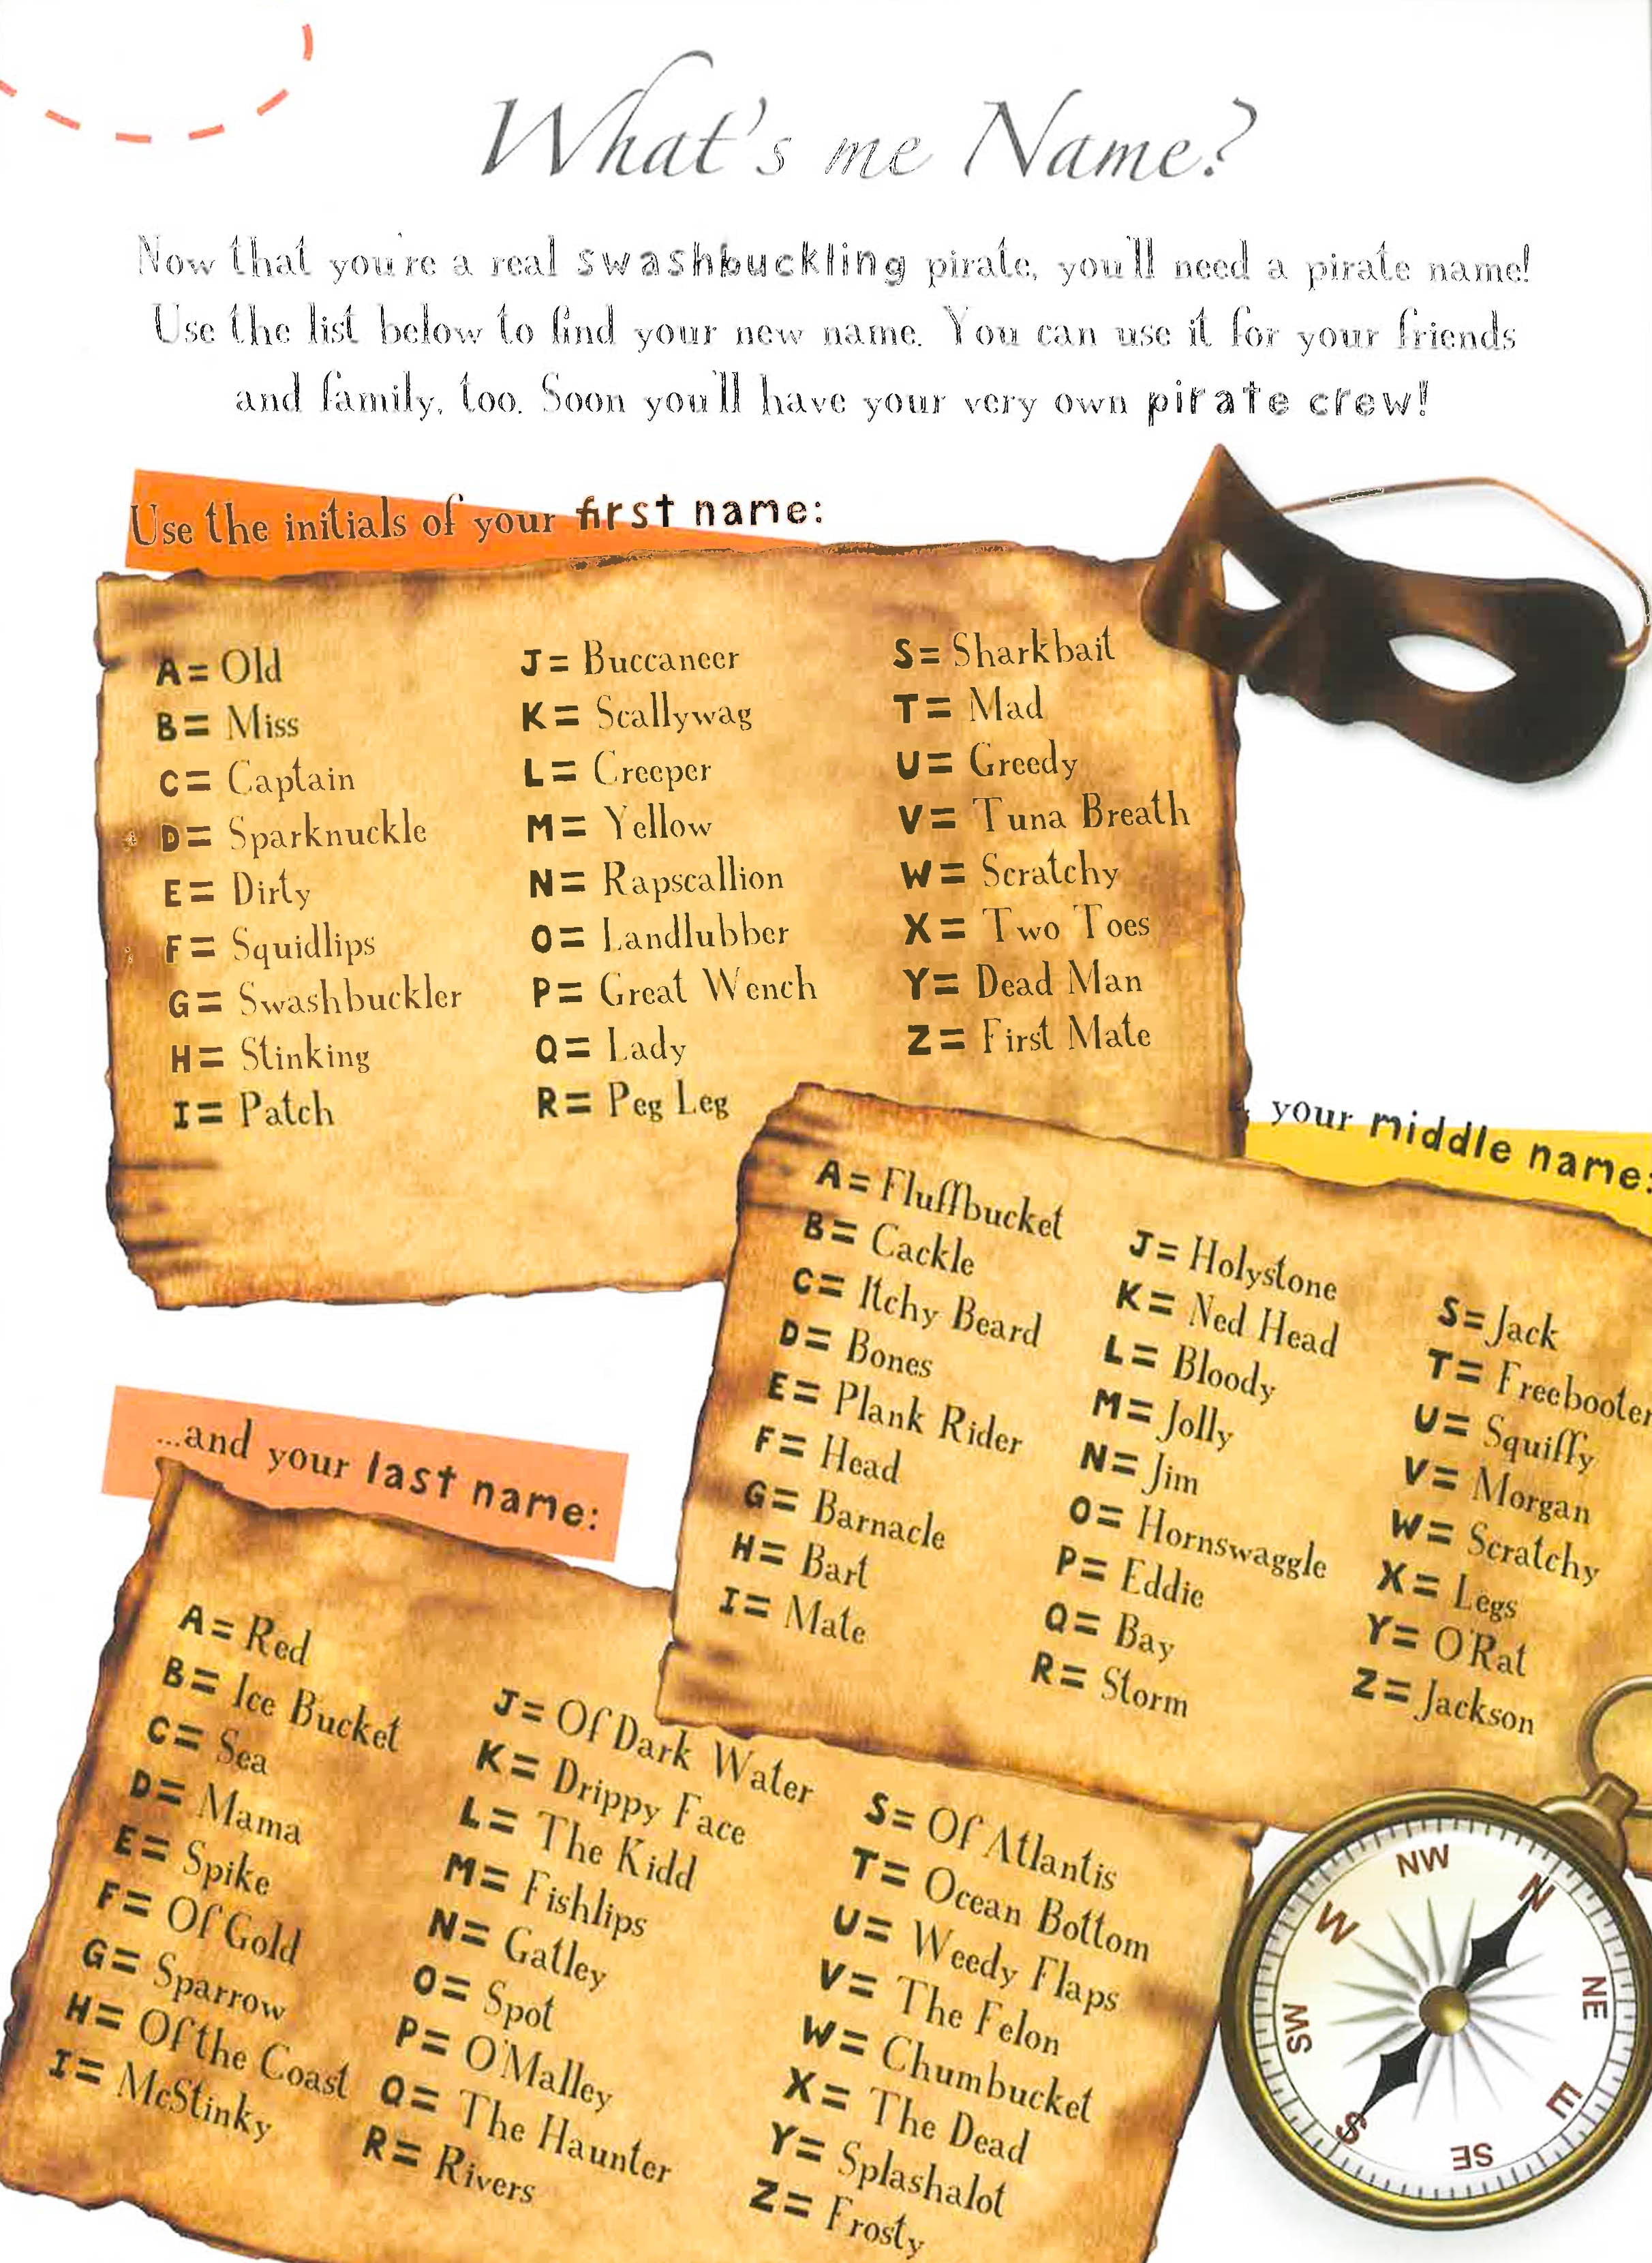 What's me Name?
Now that you're a real swashbuckling pirate, you'll need a pirate name!
Use the list below to find your new name. You can use it for your friends
and family, too. Soon you'll have your very own pirate crew!
Use the initials of your first name:
A= Old
B= Miss
C= Captain
D= Sparknuckle
E= Dirty
F= Squidlips
G= Swashbuckler
H= Stinking
I= Patch
J= Buccaneer
K= Scallywag
L= Creeper
M= Yellow
N= Rapscallion
O= Landlubber
P= Great Wench
Q= Lady
R= Peg Leg
S= Sharkbait
T= Mad
U= Greedy
V= Tuna Breath
W= Scratchy
X= Two Toes
Y= Dead Man
Z= First Mate
your middle name:
A= Fluffbucket
B= Cackle
C= Itchy Beard
D= Bones
E= Plank Rider
F= Head
G= Barnacle
H= Bart
I= Mate
J= Holystone
K= Ned Head
L= Bloody
M= Jolly
N= Jim
O= Hornswaggle
P= Eddie
Q= Bay
R= Storm
S= Jack
T= Freebooter
U= Squiffy
V= Morgan
W= Scratchy
X= Legs
Y= O'Rat
Z= Jackson
...and your last name:
A= Red
B= Ice Bucket
C= Sea
D= Mama
E= Spike
F= Of Gold
G= Sparrow
H= Of the Coast
I= McStinky
J= Of Dark Water
K= Drippy Face
L= The Kidd
M= Fishlips
N= Gatley
O= Spot
P= O'Malley
Q= The Haunter
R= Rivers
S= Of Atlantis
T= Ocean Bottom
U= Weedy Flaps
V= The Felon
W= Chumbucket
X= The Dead
Y= Splashalot
Z= Frosty
NW
N
W
NE
SW
E
S
SE